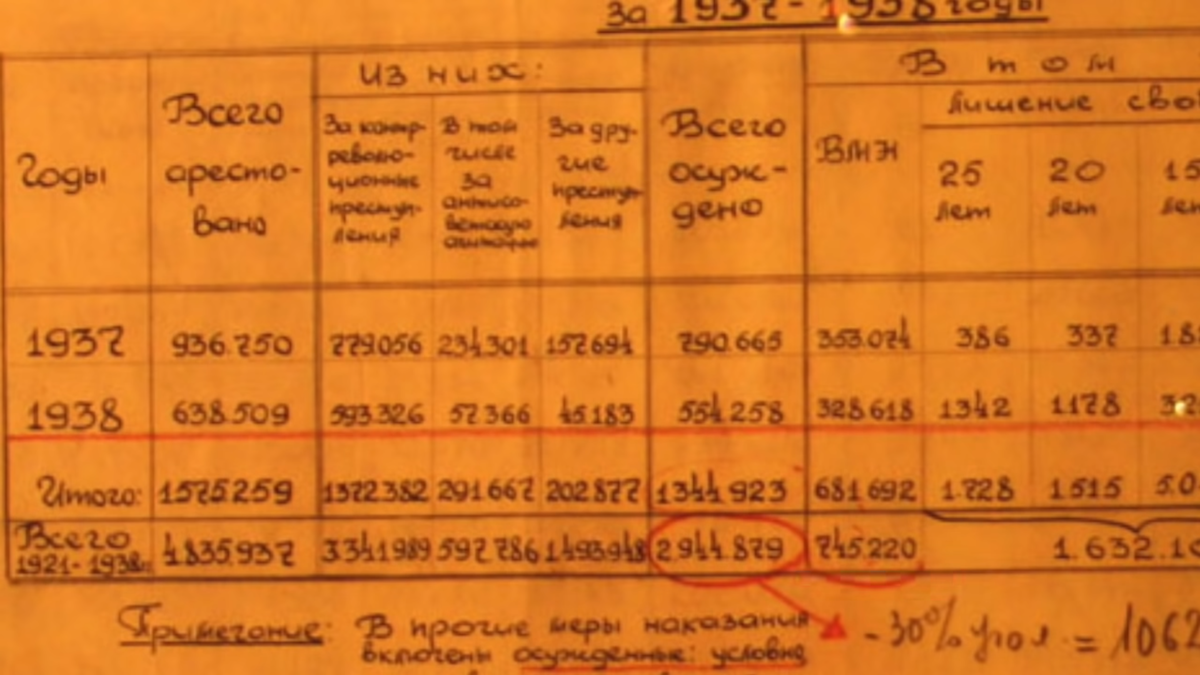 за 1937-1938 годы
Годы
Всего
аресто-
вано
Из них:
За контр-
револю-
ционные
преступ-
ления
В том
числе
за
антисо-
ветскую
агитацию
За дру-
гие
преступ-
ления
Всего
осуж-
дено
В том
ВМН
лишение сво
25
лет
20
лет
15
лет
1937 936.750 779.056 234.301 157.694 790.665 353.074 386 337 18
1938 638.509 593.326 57.366 45.183 554.258 328.618 1342 1178 32
Итого: 1575259 1372382 291667 202877 1344923 681692 1.728 1515 5.0
Всего
1921-1938г. 4835.937 3341989 597.786 1.493948 2.944.879 745.220 1.632.1
Примечание: В прочие меры наказания - 30% угол = 1062
включены осужденные: условно